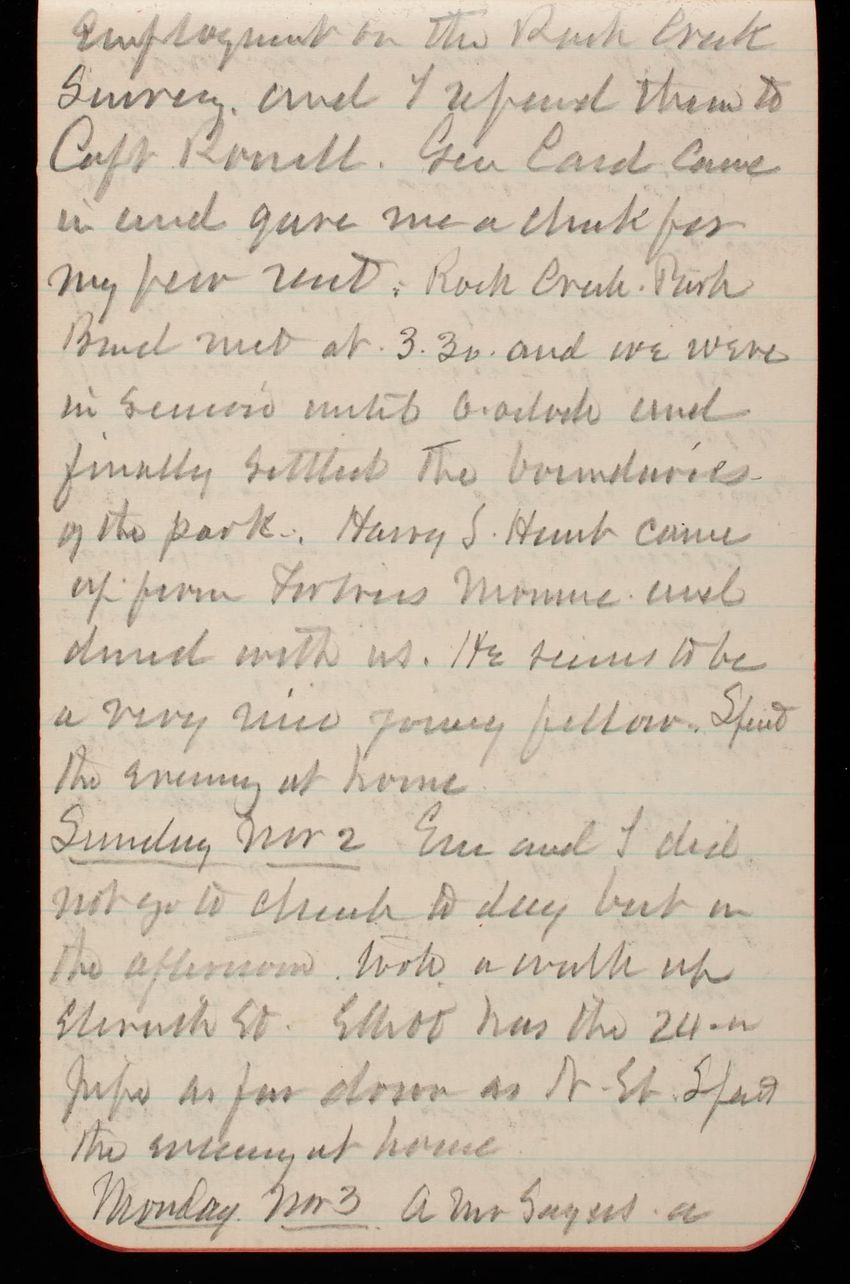 Employment on the Rock Creek
Survey. and I refered them to
Capt Rossell. Geo Card came
in and gave me a check for
my pew rent. Rock Creek Park
Board met at 3.30. and we were
in session until 6 oclock and
finally settled the boundaries
of the park. Harry S. Hunt came
up from Fortress Monroe and
dined with us. He seems to be
a very nice young fellow. Spent
the evening at home
Sunday Nov 2 Em and I did
not go to church to day but in
the afternoon took a walk up
Eleventh St. Elliot has the 24 in
pipe as far down as N. St. Spent
the evening at home
Monday Nov 3 A Mr Sayers a